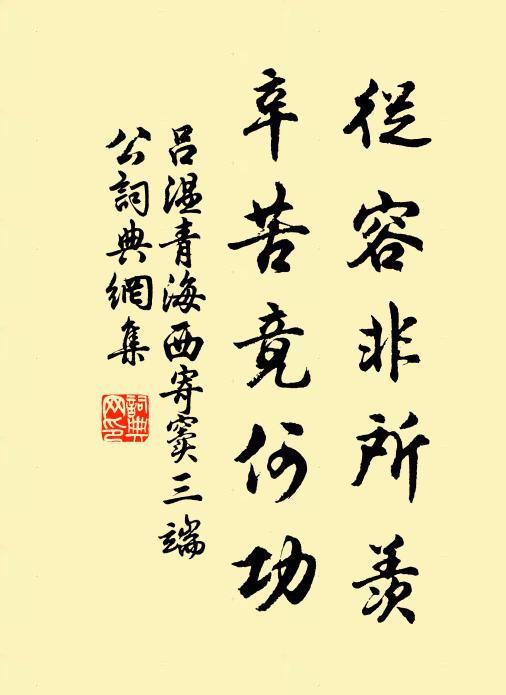 從容非所羨
辛苦竟何功
呂溫青海西寄竇三端
公詞典網集
詞典
网印